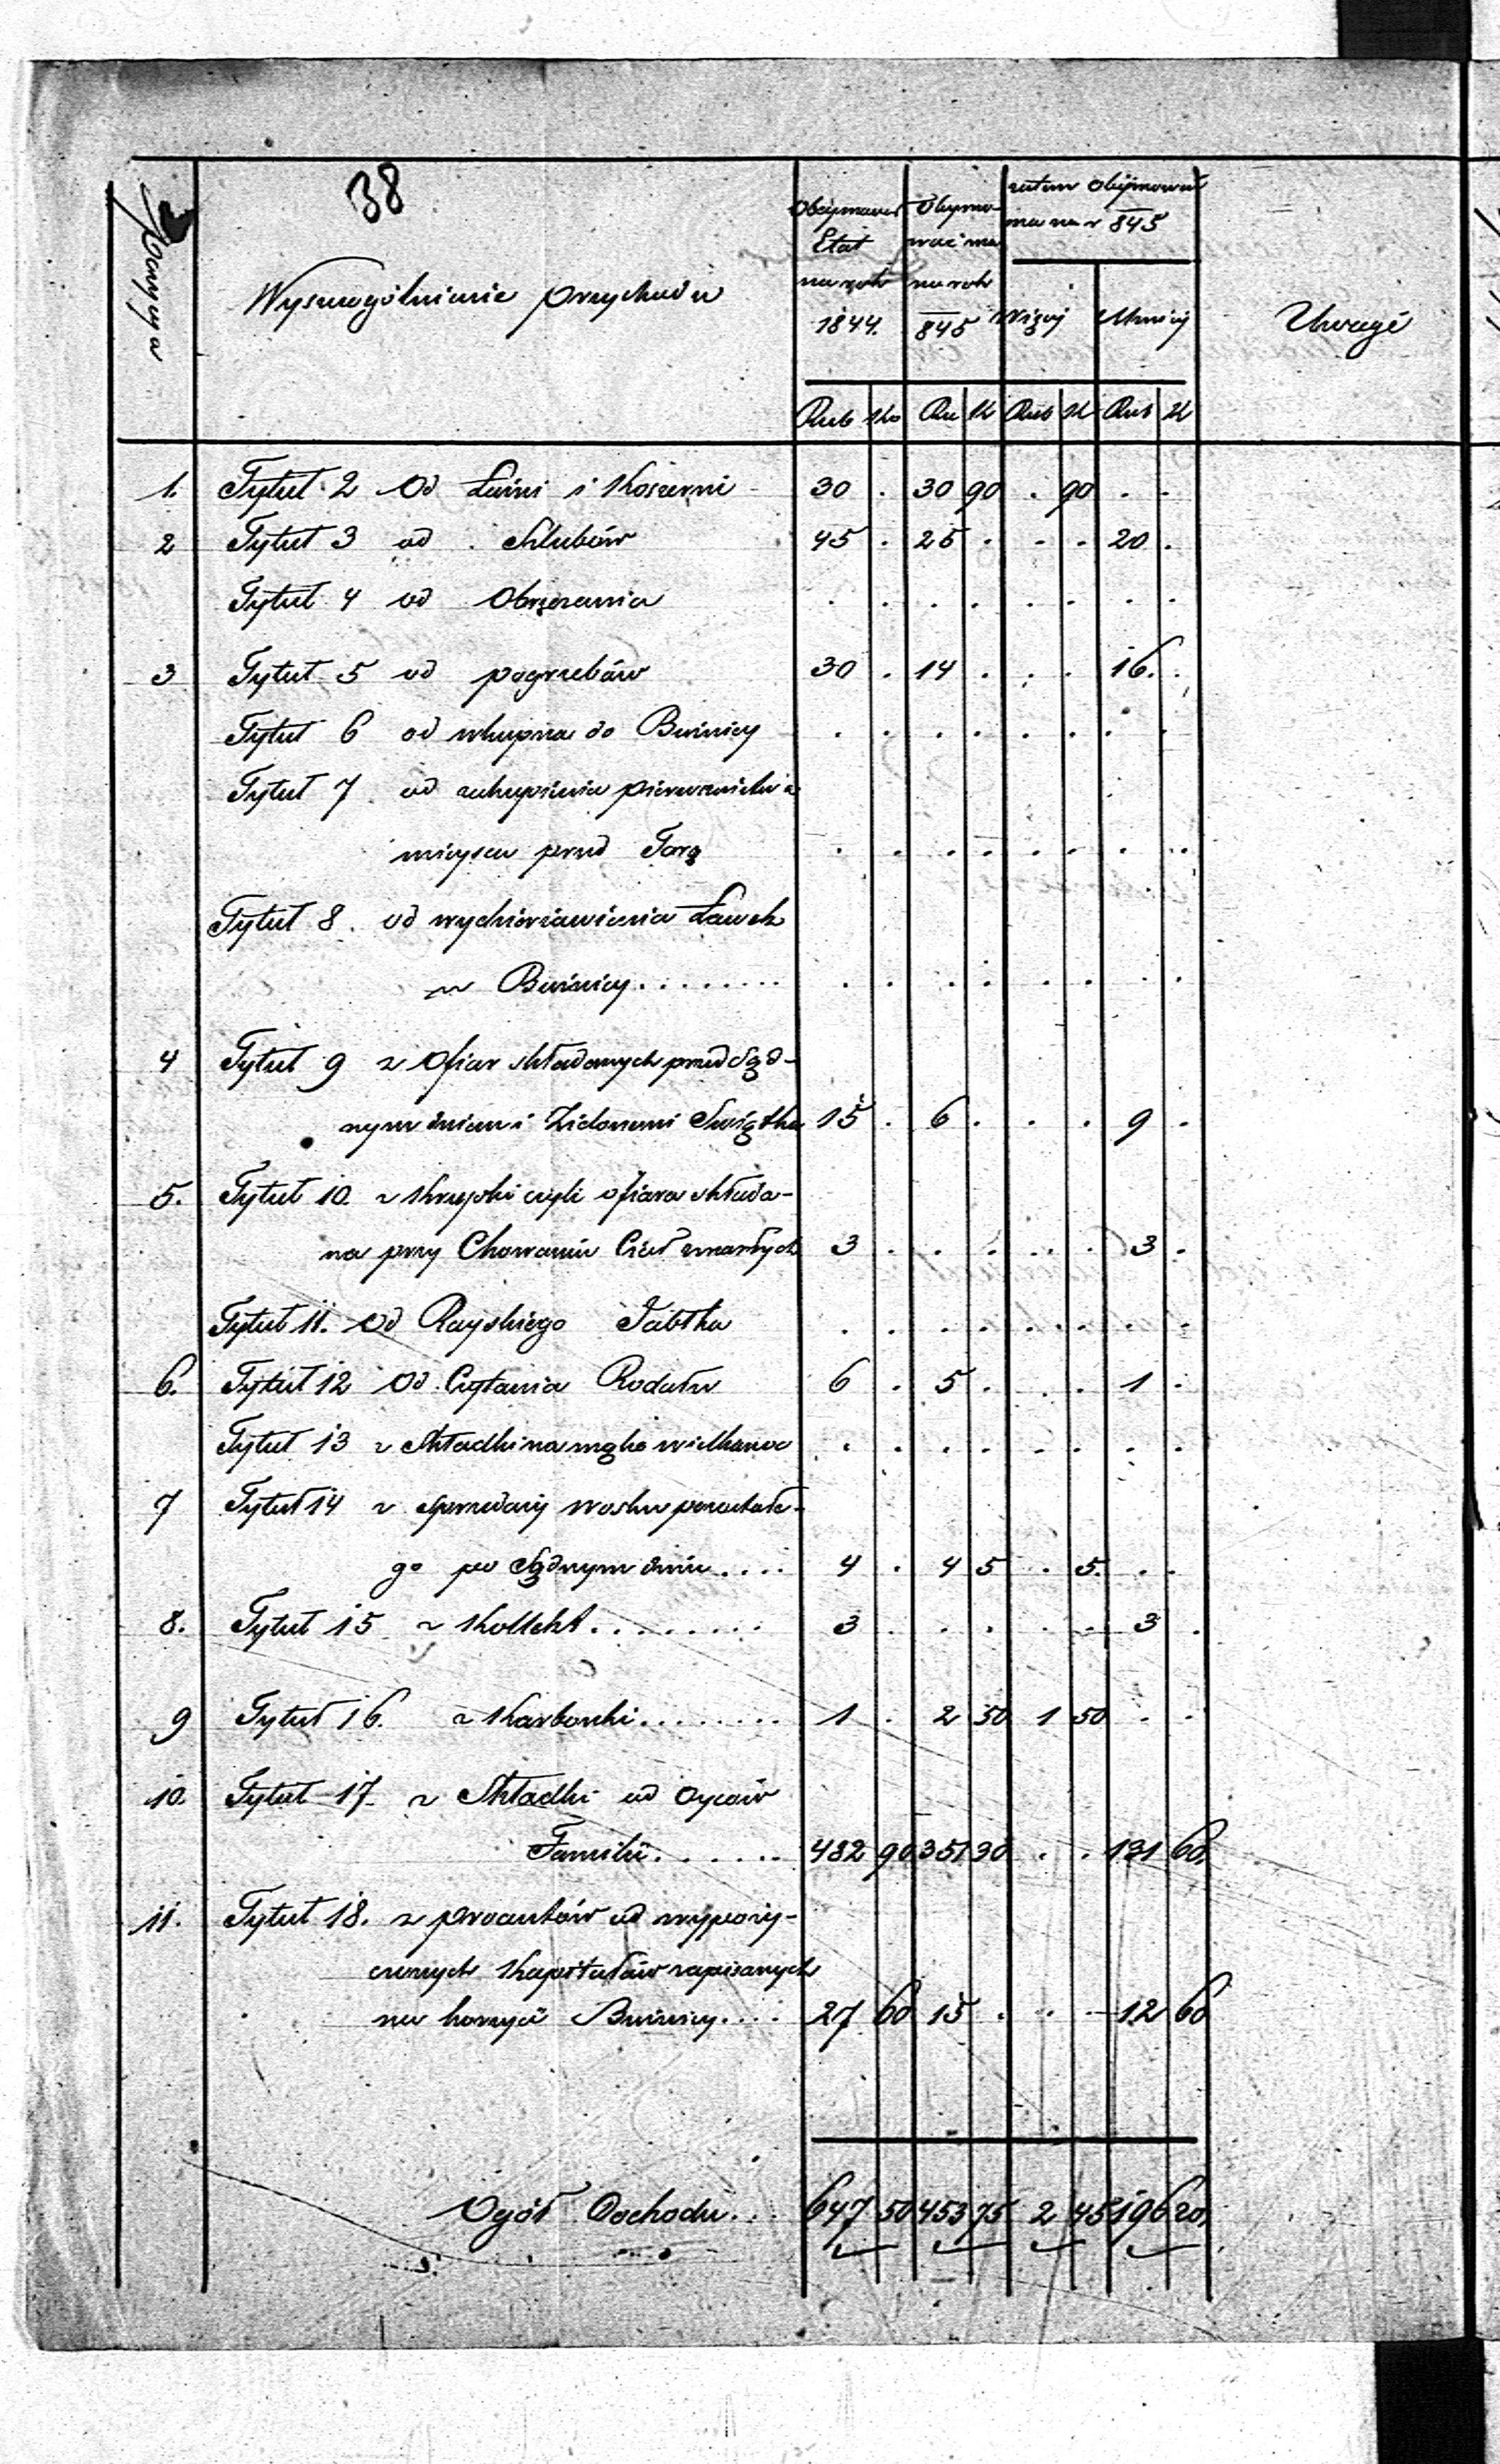 38
Pozycya
Wyszczególnienie przychodu
Obejmował Etat na rok 1844.
Obejmować ma na rok 845
zatem Obejmować ma na r 845
Więcej
Mniej
Uwagi
Rub Ko Ru K Rub K Rub K
1. Tytuł 2 Od Łaźni i Koszerni 30 . 30 90 . 90 . .
2 Tytuł 3 od Szlubów 45 . 25 . . . 20 .
Tytuł 4 od Obrzezania . . . . . . . .
3 Tytuł 5 od pogrzebów 30 . 14 . . . 16. .
Tytuł 6 od wkupna do Bużnicy . . . . . . . .
Tytuł 7 od zakupienia pierwszeństwa
mieysca przed Torą . . . . . . . .
Tytuł 8. od wydzierżawienia Ławek
w Bużnicy........ . . . . . . . .
4 Tytuł 9 z Ofiar składanych przed Sąd-
nym dniem i Zielonemi Swiątka 15 . 6 . . . 9 .
5. Tytuł 10 z Skrzynki czyli ofiara składa-
na przy Chowaniu Ciał zmarłych 3 . . . . . 3 .
Tytuł 11. Od Rayskiego Jabłka . . . . . . . .
6. Tytuł 12 Od Czytania Rodału 6 . 5 . . . 1 .
Tytuł 13 z Składki na mąkę wielkanoc . . . . . . . .
7 Tytuł 14 z sprzedaży wosku pozostałe-
go po Sądnym dniu.... 4 . 4 5 . 5. . .
8. Tytuł 15 z Kollekt......... 3 . . . . . 3 .
9 Tytuł 16. z Skarbonki........ 1 . 2 50 1 50 . .
10. Tytuł 17 z Składki od Oyców
Familii...... 482 90 351 30 . . 131 60.
11. Tytuł 18. z procentów od wypoży-
czonych Kapitałów zapisanych
na korzyść Bużnicy.... 27 60 15 . . . 12 60
Ogół Dochodu... 647 50 453 75 2 45 196 20.